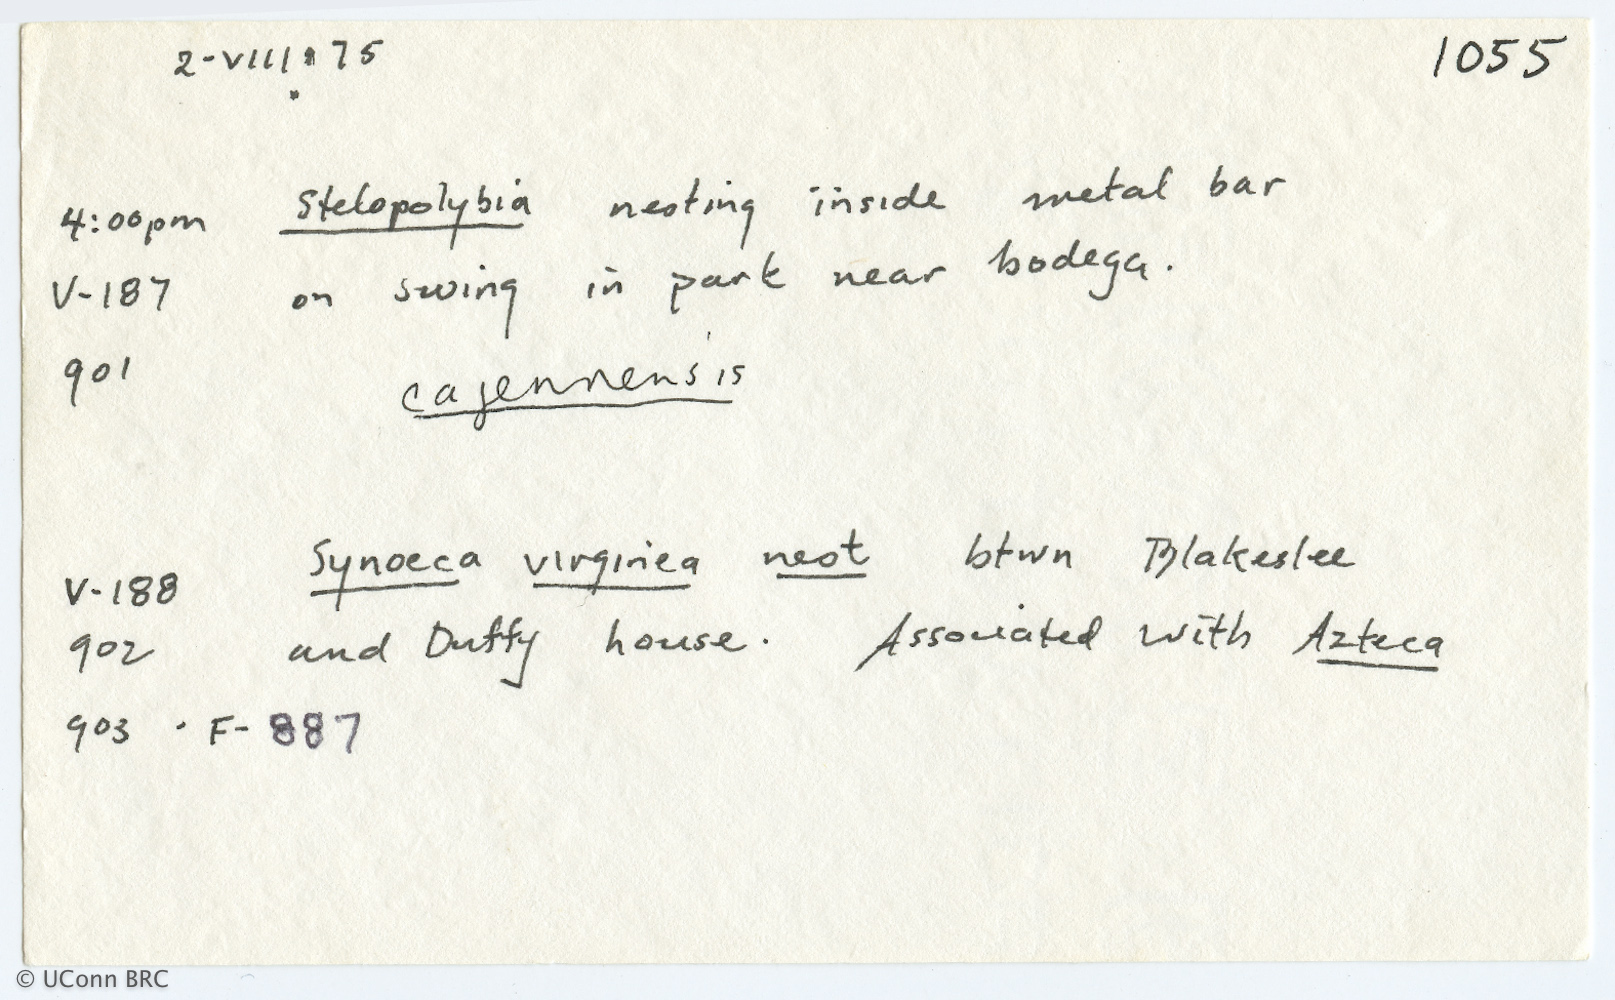 2-VIII-75 1055
4:00pm Stelopolybia nesting inside metal bar
V-187 on swing in park near bodega.
901 cajennensis
V-188 Synoeca virginea nest btwn Blakeslee
902 and Duffy house. Associated with Azteca
903 · F-887
© UConn BRC